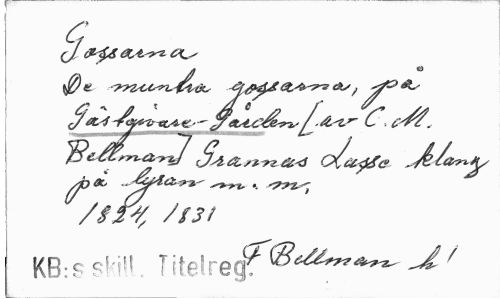 Gossarna
De muntra gossarna, på
Gästgivare-Gården [av C. M.
Bellman] Grannas Lasse klang
på lyran m. m.
1824, 1831
F Bellman h!
KB:s skill. Titelreg.